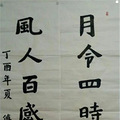 月令四時
風人百感
丁酉年夏